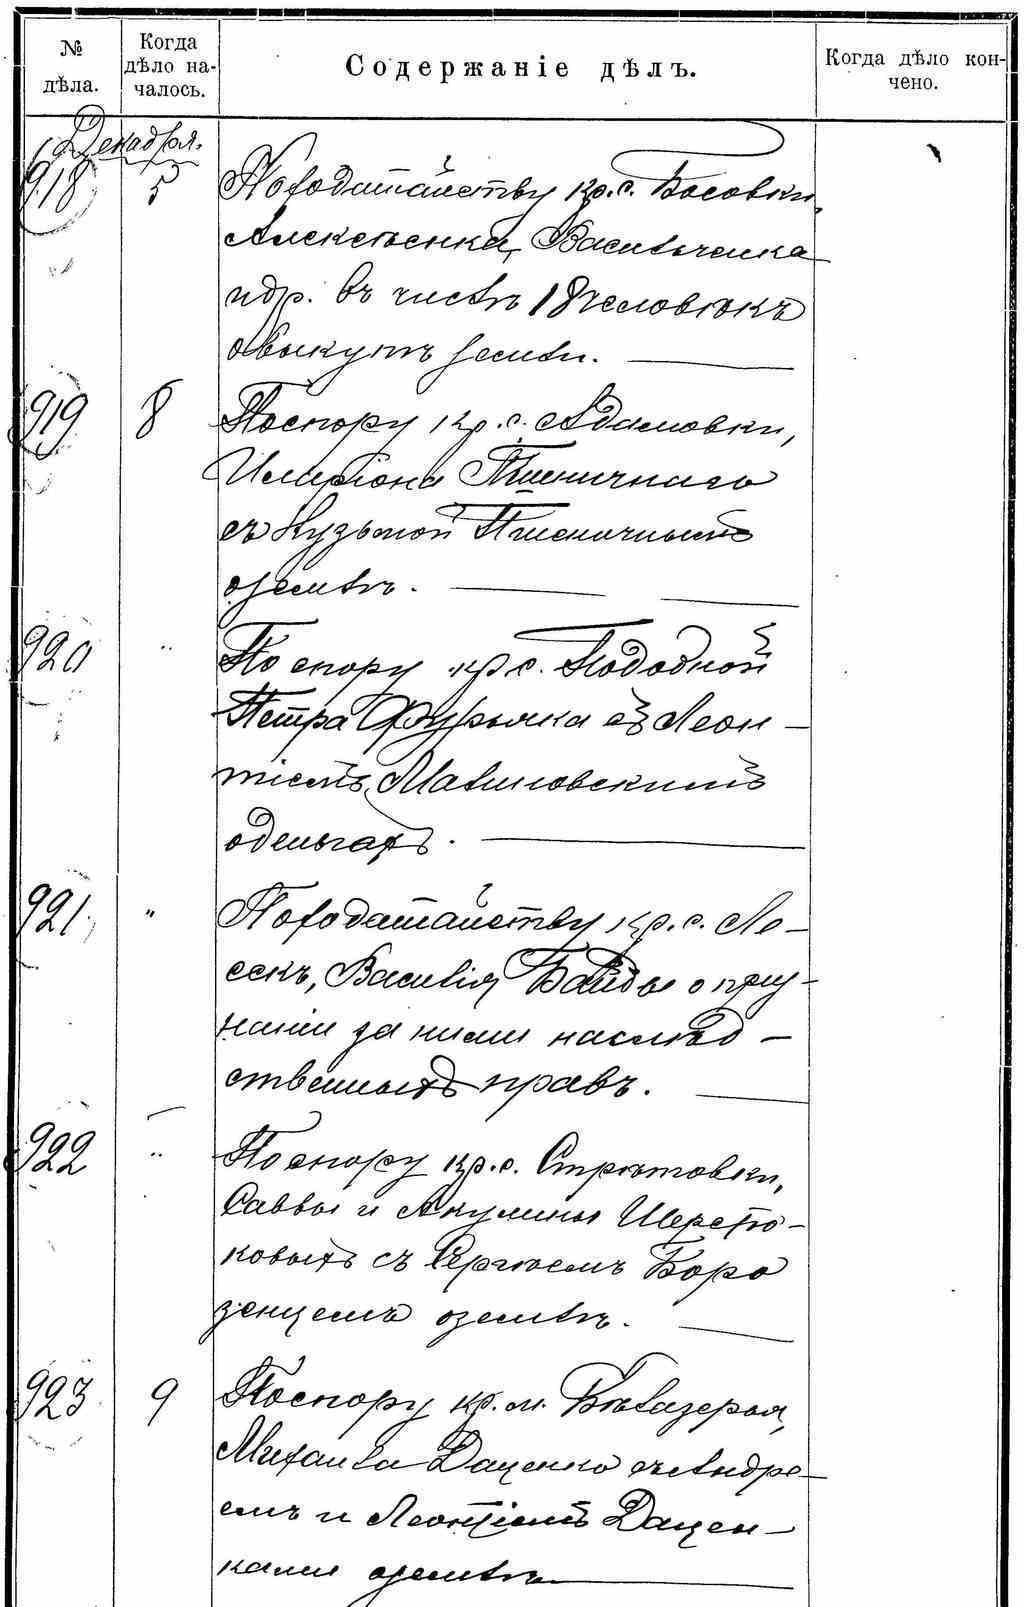 № дѣла.
Когда дѣло началось.
Содержаніе дѣлъ.
Когда дѣло кончено.
Декабря.
918 5 По ходатайству кр. с. Босовки,
Алексѣенка, Васильченка
и др. въ числѣ 18 человѣкъ
о выкупѣ земли.
919 8 По спору кр. с. Адамовки,
Иларіона Пшеничнаго
съ Кузьмой Пшеничнымъ
о землѣ.
920 " По спору кр. с. Пододной
Петра Фурлика съ Леон-
тіемъ Малиновскимъ
о деньгахъ.
921 " По ходатайству кр. с. Ле-
секъ, Василія Байды о приз-
наніи за ними наслѣд-
ственныхъ правъ.
922 " По спору кр. с. Стрѣтовки,
Саввы и Акулины Шерстю-
ковыхъ съ Сергѣемъ Боро
зенцемъ о землѣ.
923 9 По спору кр. м. Бѣлазерья,
Михаила Даценко съ Андре-
емъ и Леонтіемъ Дацен-
ками о землѣ